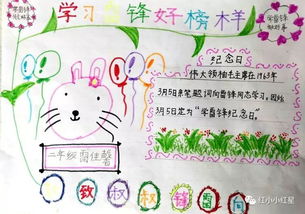 学习雷锋好榜样
学雷锋
做好事
学雷锋
做好事
纪念日
伟大领袖毛主席在1963年
3月5日来笔题词向雷锋同志学习。因此
3月5日定为“学雷锋纪念日”
二年级
致敬叔叔雷锋
红小小红星